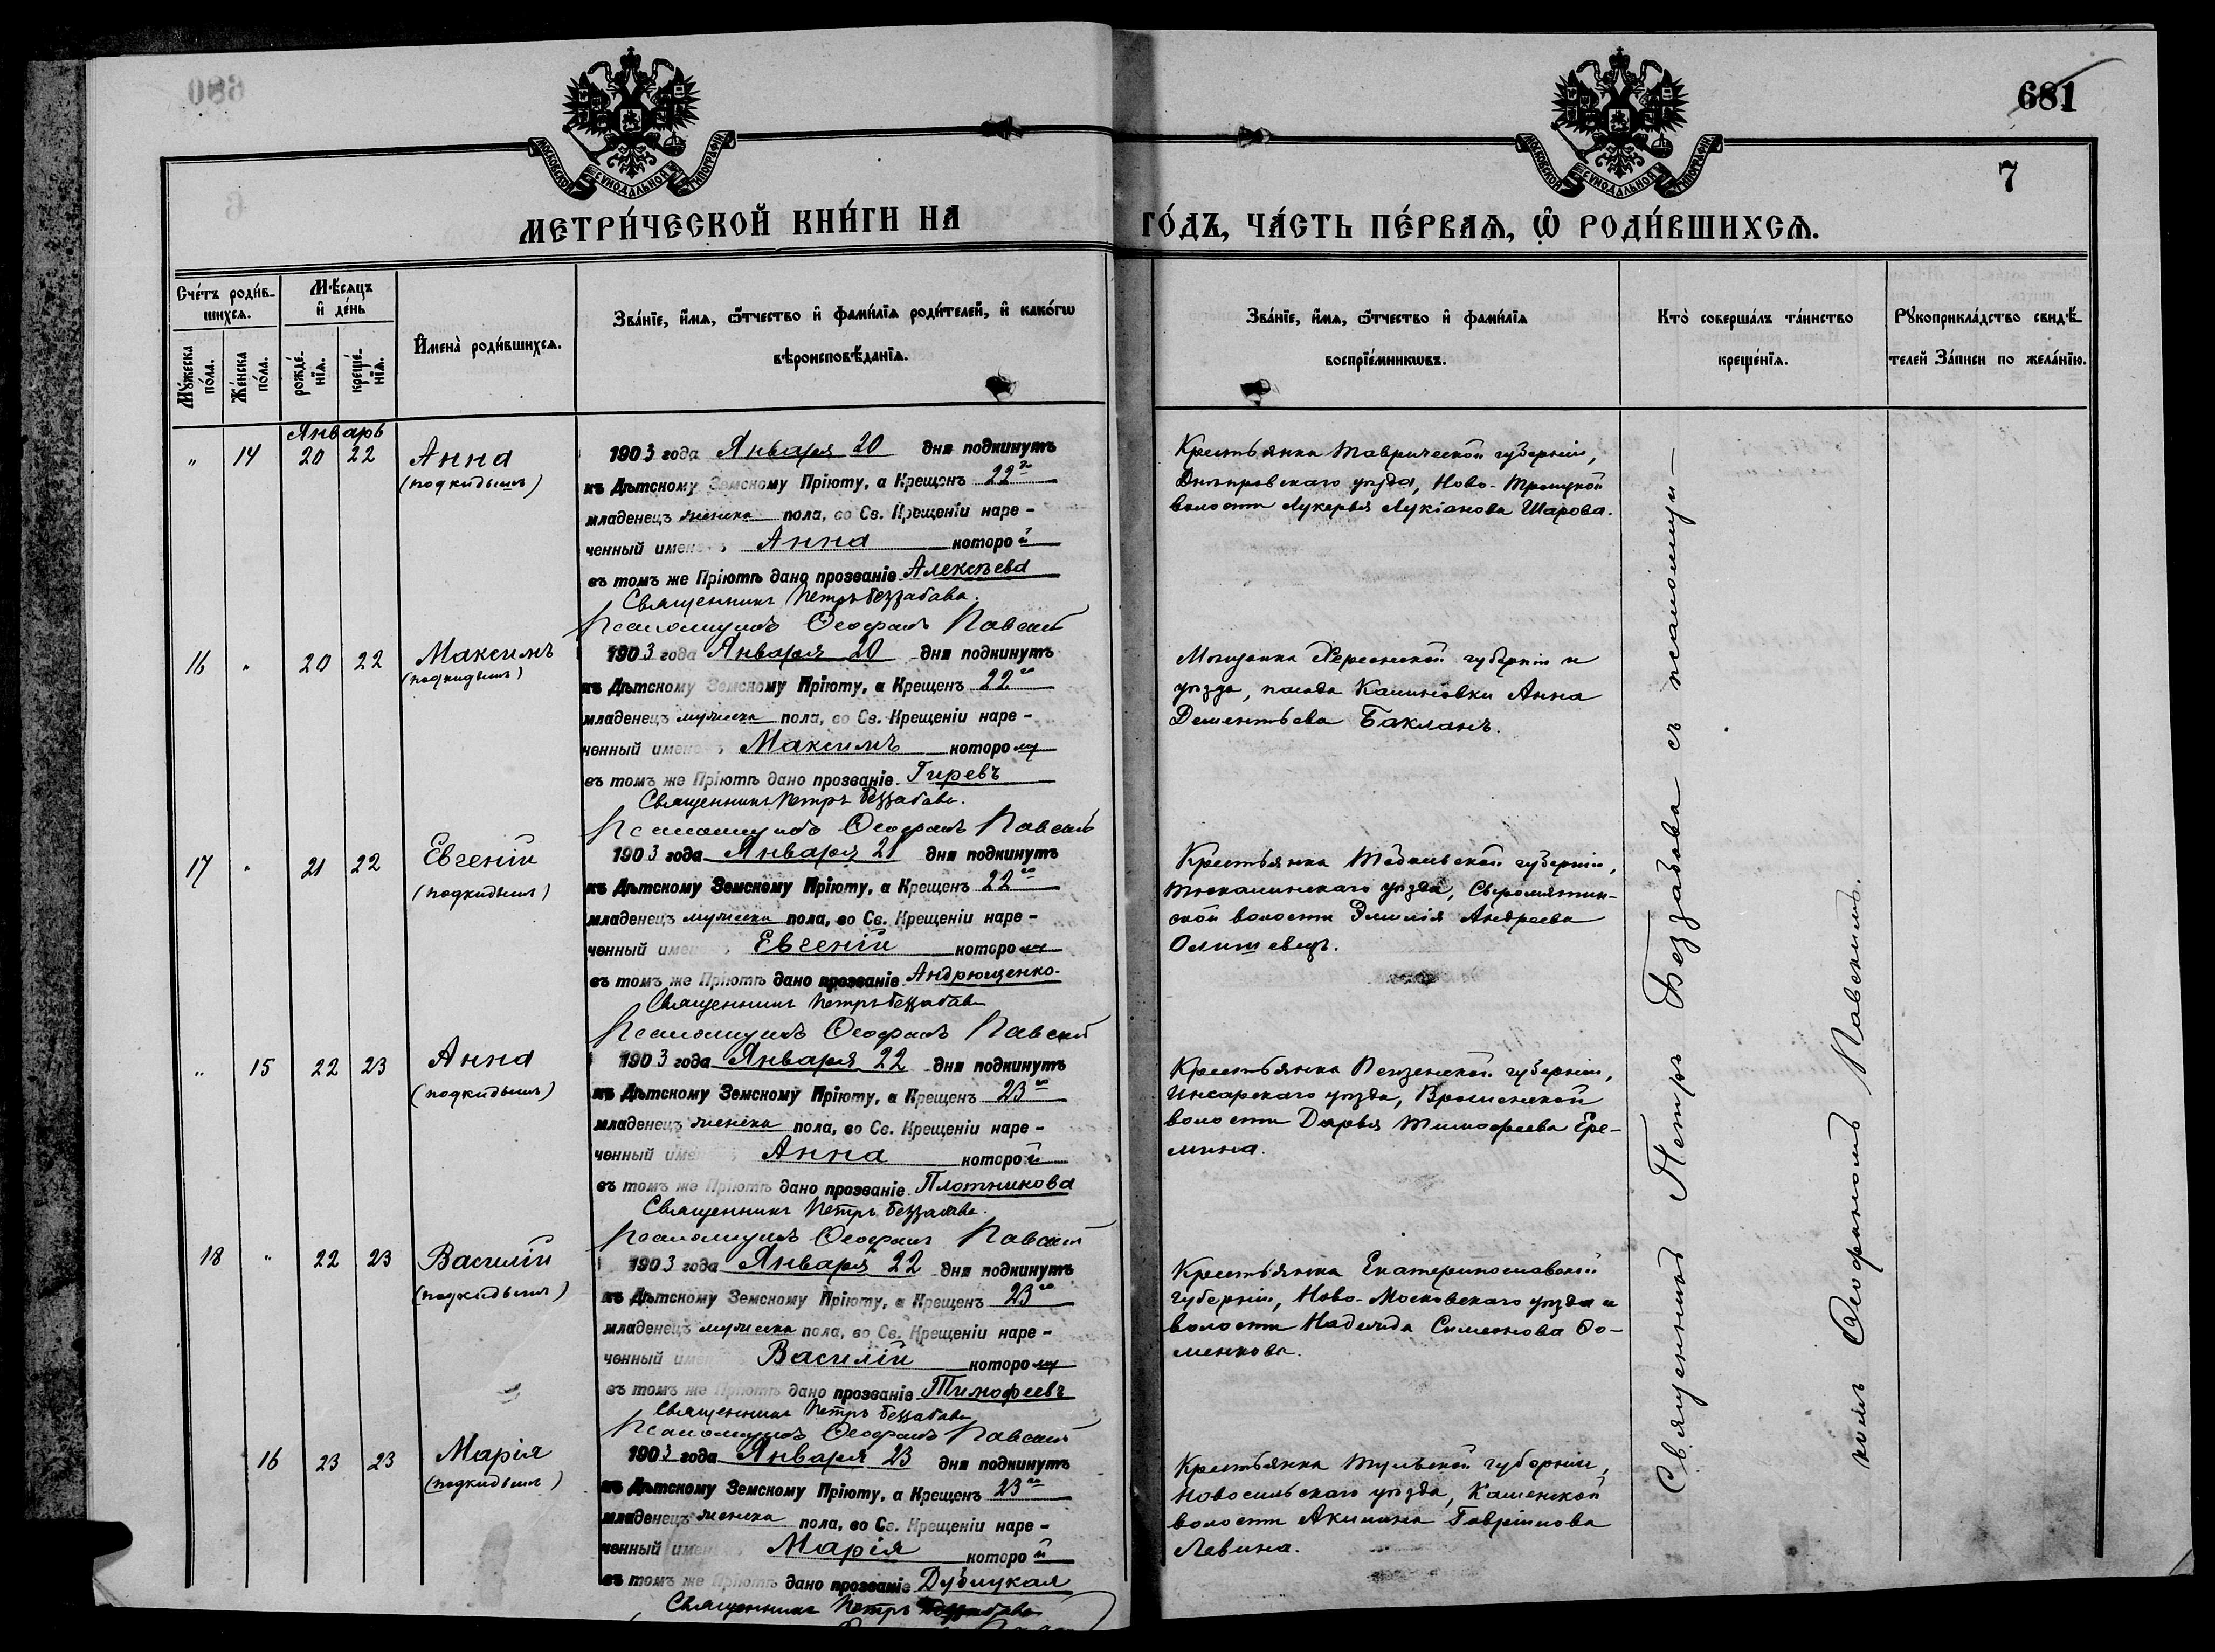 681
7
МОСКОВСКОЙ СѴНОДАЛЬНОЙ ТИПОГРАФІИ
МОСКОВСКОЙ СѴНОДАЛЬНОЙ ТИПОГРАФІИ
МЕТРИ́ЧЕСКОЙ КНИ́ГИ НА ГО́ДЪ, ЧА́СТЬ ПЕ́РВАѦ, Ѽ РОДИ́ВШИХСѦ.
Сче́тъ роди́в-
шихсѧ.
Мꙋ́жеска по́ла.
Же́нска по́ла.
Мѣ́сѧцъ и҆ де́нь
рожде́-
нїѧ.
креще́-
нїѧ.
И҆мена̀ роди́вшихсѧ.
Зва́нїе, и҆́мѧ, ѻ҆́тчество и҆ фами́лїѧ роди́телей, и҆ како́гѡ
вѣроисповѣ́данїѧ.
Зва́нїе, и҆́мѧ, ѻ҆́тчество и҆ фами́лїѧ
воспрїе́мникѡвъ.
Кто̀ соверша́лъ та́инство
креще́нїѧ.
Рꙋкоприкла́дство свидѣ́-
телей за́писи по жела́нїю.
Январь
" 14 20 22 Анна
(подкидышъ)
1903 года Января 20 дня подкинутъ
къ Дѣтскому Земскому Пріюту, а Крещенъ 22го
младенецъ женска пола, во Св. Крещеніи наре-
ченный именемъ Анна которой
въ томъ же Пріютѣ дано прозваніе Алексѣева
Священникъ Петръ Беззабава.
Псаломщикъ Ѳеофанъ Павскій
Крестьянка Таврической губерніи,
Днѣпровскаго уѣзда, Ново-Троицкой
волости Лукерья Лукіанова Шарова.
16 " 20 22 Максимъ
(подкидышъ)
1903 года Января 20 дня подкинутъ
къ Дѣтскому Земскому Пріюту, а Крещенъ 22го
младенецъ мужеска пола, во Св. Крещеніи наре-
ченный именемъ Максимъ которому
въ томъ же Пріютѣ дано прозваніе Гиревъ
Священникъ Петръ Беззабава.
Псаломщикъ Ѳеофанъ Павскій
Мѣщанка Херсонской губерніи и
уѣзда, посада Калиновки Анна
Дементьева Бакланъ.
17 " 21 22 Евгеній
(подкидышъ)
1903 года Января 21 дня подкинутъ
къ Дѣтскому Земскому Пріюту, а Крещенъ 22го
младенецъ мужеска пола, во Св. Крещеніи наре-
ченный именемъ Евгеній которому
въ томъ же Пріютѣ дано прозваніе Андрющенко.
Священникъ Петръ Беззабава
Псаломщикъ Ѳеофанъ Павскій
Крестьянка Тобольской губерніи,
Тюкалинскаго уѣзда, Сыромятин-
ской волости Эмилія Андреева
Олишевецъ.
" 15 22 23 Анна
(подкидышъ)
1903 года Января 22 дня подкинутъ
къ Дѣтскому Земскому Пріюту, а Крещенъ 23го
младенецъ женска пола, во Св. Крещеніи наре-
ченный именемъ Анна которой
въ томъ же Пріютѣ дано прозваніе Плотникова
Священникъ Петръ Беззабава.
Псаломщикъ Ѳеофанъ Павскій
Крестьянка Пензенской губерніи,
Инсарскаго уѣзда,
волости Дарья Тимофеева Ере-
мина.
18 " 22 23 Василій
(подкидышъ)
1903 года Января 22 дня подкинутъ
къ Дѣтскому Земскому Пріюту, а Крещенъ 23го
младенецъ мужеска пола, во Св. Крещеніи наре-
ченный именемъ Василій которому
въ томъ же Пріютѣ дано прозваніе Тимофеевъ
Священникъ Петръ Беззабава
Псаломщикъ Ѳеофанъ Павскій
Крестьянка Екатеринославской
губерніи, Ново-Московскаго уѣзда и
волости Надежда Симеонова Ѳо-
менкова.
16 23 23 Марія
(подкидышъ)
1903 года Января 23 дня подкинутъ
къ Дѣтскому Земскому Пріюту, а Крещенъ 23го
младенецъ женска пола, во Св. Крещеніи наре-
ченный именемъ Марія которой
въ томъ же Пріютѣ дано прозваніе Дублицкая
Священникъ Петръ Беззабава
Крестьянка Тульской губерніи,
Новосильскаго уѣзда, Каменской
волости Акилина Гавріилова
Левина.
Священникъ Петръ Беззабава съ псаломщи-
комъ Ѳеофаномъ Павскимъ.